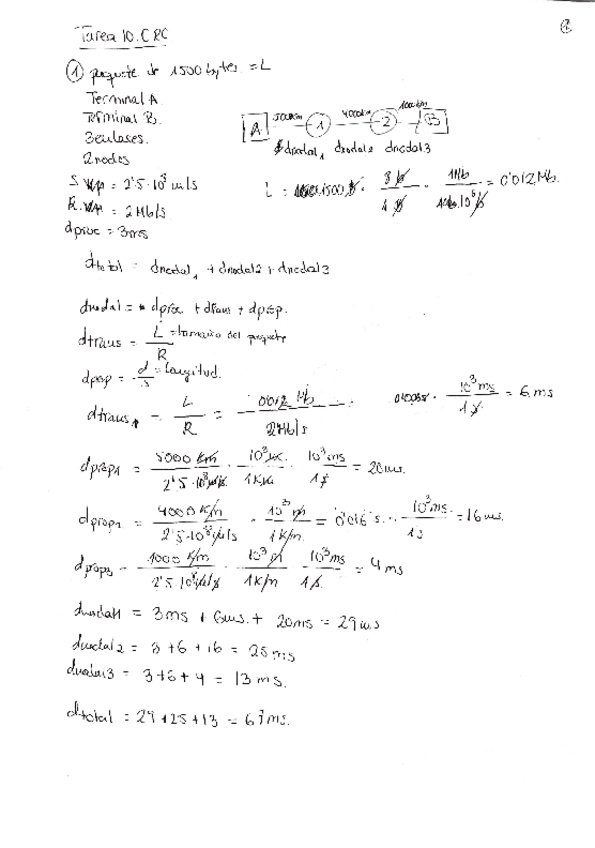 Tarea 10. CRC
① paquete de 1500 bytes = L
Terminal A
Terminal B.
3 enlaces.
2 nodos
A 5000km 1 4000km 2 1000km B
dnodal1 dnodal2 dnodal3
S = 2'5·10⁸ m/s
R = 2 Mb/s
dproc = 3ms
L = 1500 B · 8 b / 1 B · 1 Mb / 10⁶ b = 0'012 Mb.
dtotal = dnodal1 + dnodal2 + dnodal3
dnodal = dproc + dtrans + dprop.
dtrans = L / R = tamaño del paquete
dprop = d / s = longitud.
dtrans1 = L / R = 0'012 Mb / 2Mb/s · 10³ms / 1 s = 6 ms
dprop1 = 5000 km / 2'5·10⁸ m/s · 10³ m / 1 km · 10³ ms / 1 s = 20 ms.
dprop2 = 4000 km / 2'5·10⁸ m/s · 10³ m / 1 km = 0'016 s · 10³ ms / 1 s = 16 ms.
dprop3 = 1000 km / 2'5·10⁸ m/s · 10³ m / 1 km · 10³ ms / 1 s = 4 ms
dnodal1 = 3ms + 6ms + 20ms = 29 ms
dnodal2 = 3+6+16 = 25 ms
dnodal3 = 3+6+4 = 13 ms.
dtotal = 29+25+13 = 67 ms.